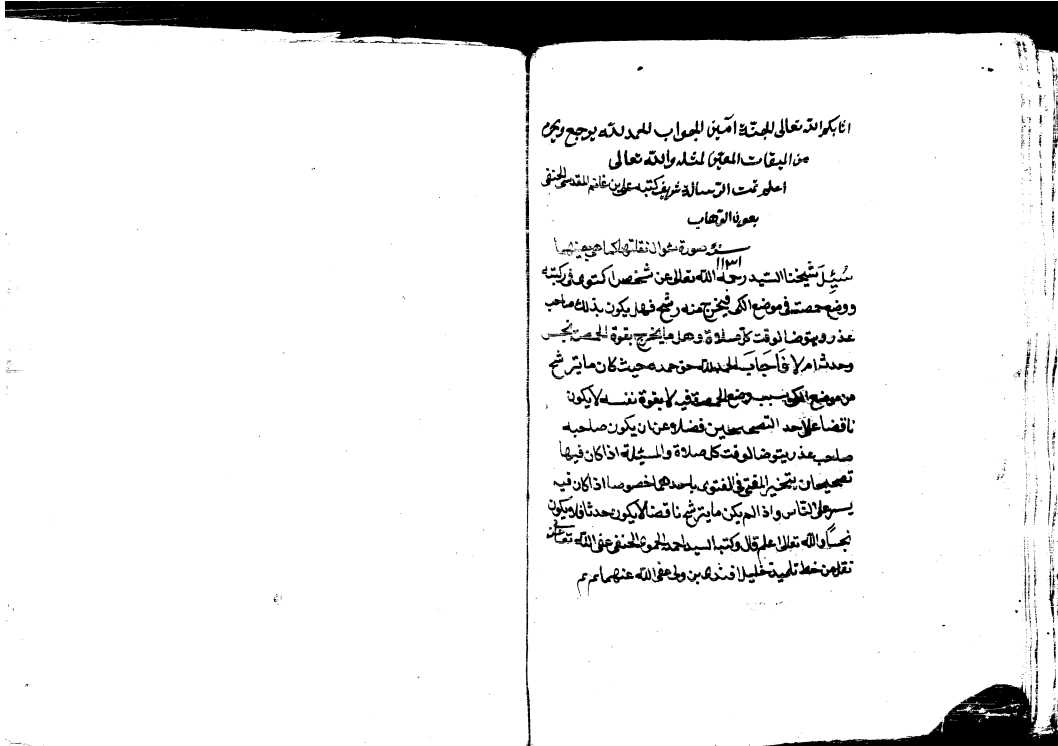 اثابكم الله تعالى الجنة امين الجواب الحمد لله يرجع ويحرم
من الميقات المعين لمثله والله تعالى
اعلم تمت الرسالة شريف كتبه على بن غانم المقدسى الحنفى
بعون الوهاب
سنة صورة سوال نقلتها كما هى بعينها
١١٣١
سُئِلَ شيخنا السيد رحمه الله تعالى عن شخص اكتوى فى ركبته
ووضع حمصة فى موضع الكى فيخرج منه رشح فهل يكون بذلك صاحب
عذر ويتوضا لوقت كل صلاة وهل ما يخرج بقوة الحمصة نجس
وحدث ام لا فَاَجَابَ الحمد لله حق حمده حيث كان ما يترشح
من موضع الكى بسبب وضع الحمصة فيه لا بقوة نفسه لا يكون
ناقضا على احد التصحيحين فضلا عن ان يكون صاحبه
صاحب عذر يتوضا لوقت كل صلاة والمسئلة اذا كان فيها
تصحيحان يتخير المفتى فى الفتوى باحدهما خصوصا اذا كان فيه
يسر على الناس واذا لم يكن ما يترشح ناقضا لا يكون حدثا فلا يكون
نجسًا والله تعالى اعلم قال وكتبه السيد احمد الحموى الحنفى عفى الله تعالى عنه
نقل من خط تلميذه خليل افندى بن ولى عفى الله عنهما تم تم